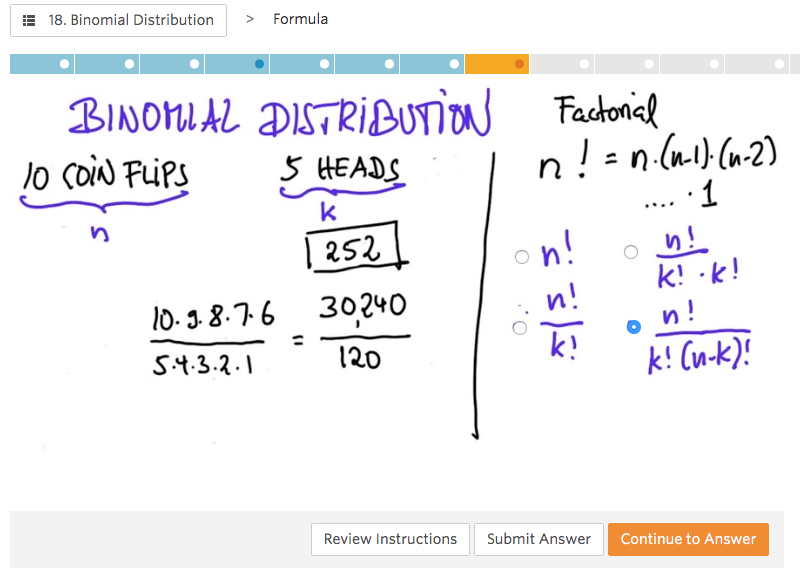 18. Binomial Distribution > Formula
BINOMIAL DISTRIBUTION
10 COIN FLIPS
n
5 HEADS
k
252
10·9·8·7·6
5·4·3·2·1
=
30,240
120
Factorial
n! = n·(n-1)·(n-2)
.... · 1
n!
n!
k! · k!
n!
k!
n!
k! (n-k)!
Review Instructions Submit Answer Continue to Answer